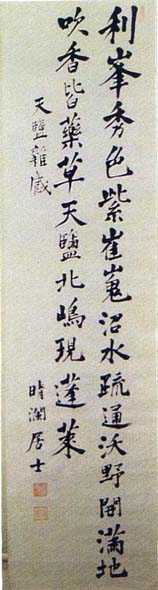 利峯秀色紫崔嵬沼水疏通沃野開滿地
吹香皆藥草天鹽北嶋現蓬萊
天鹽雜感
晴瀾居士